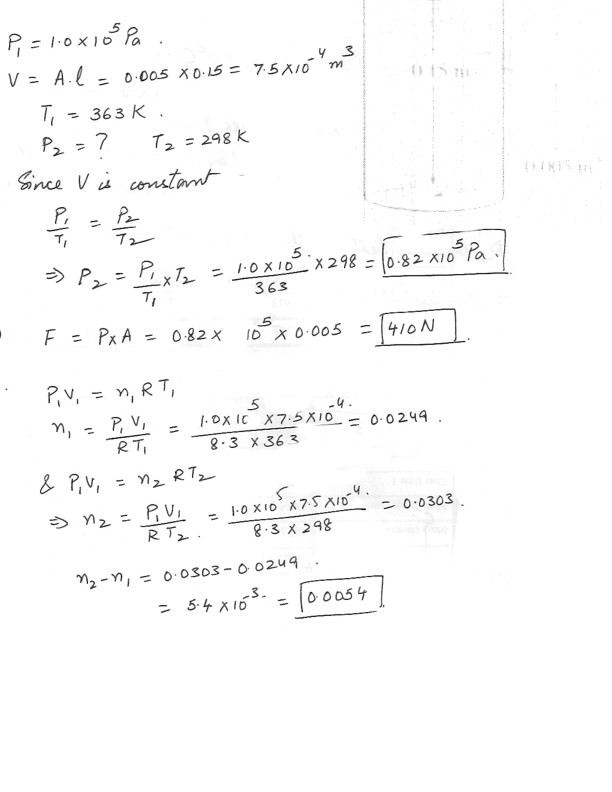 P₁ = 1.0 × 10⁵ Pa .
V = A.l = 0.005 × 0.15 = 7.5×10⁻⁴ m³
T₁ = 363 K .
P₂ = ? T₂ = 298 K
Since V is constant
P₁/T₁ = P₂/T₂
⇒ P₂ = P₁/T₁ × T₂ = 1.0 × 10⁵/363 × 298 = 0.82 × 10⁵ Pa.
F = P×A = 0.82 × 10⁵ × 0.005 = 410 N .
P₁V₁ = n₁RT₁
n₁ = P₁V₁/RT₁ = 1.0×10⁵ × 7.5×10⁻⁴/8.3 × 363 = 0.0249 .
& P₁V₁ = n₂RT₂
⇒ n₂ = P₁V₁/RT₂ . = 1.0×10⁵ × 7.5×10⁻⁴/8.3 × 298 = 0.0303 .
n₂-n₁ = 0.0303 - 0.0249 .
= 5.4 × 10⁻³ = 0.0054